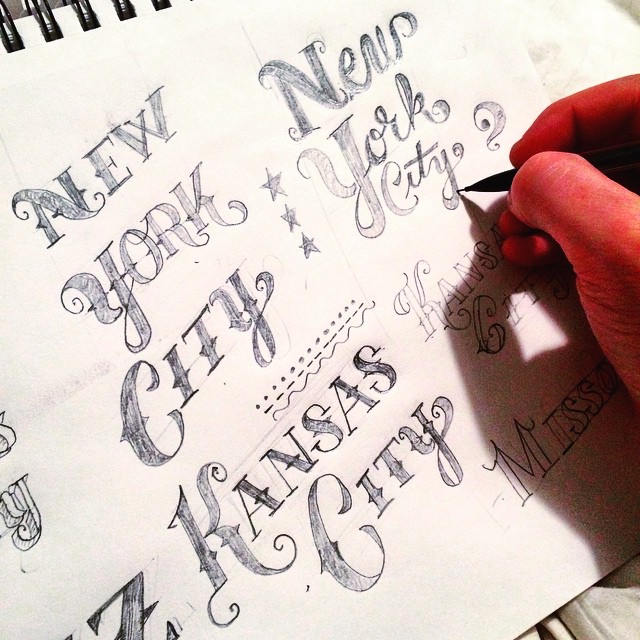 NEW
YORK
CITY
New
York
City ?
KANSAS
CITY
KANSAS
CITY